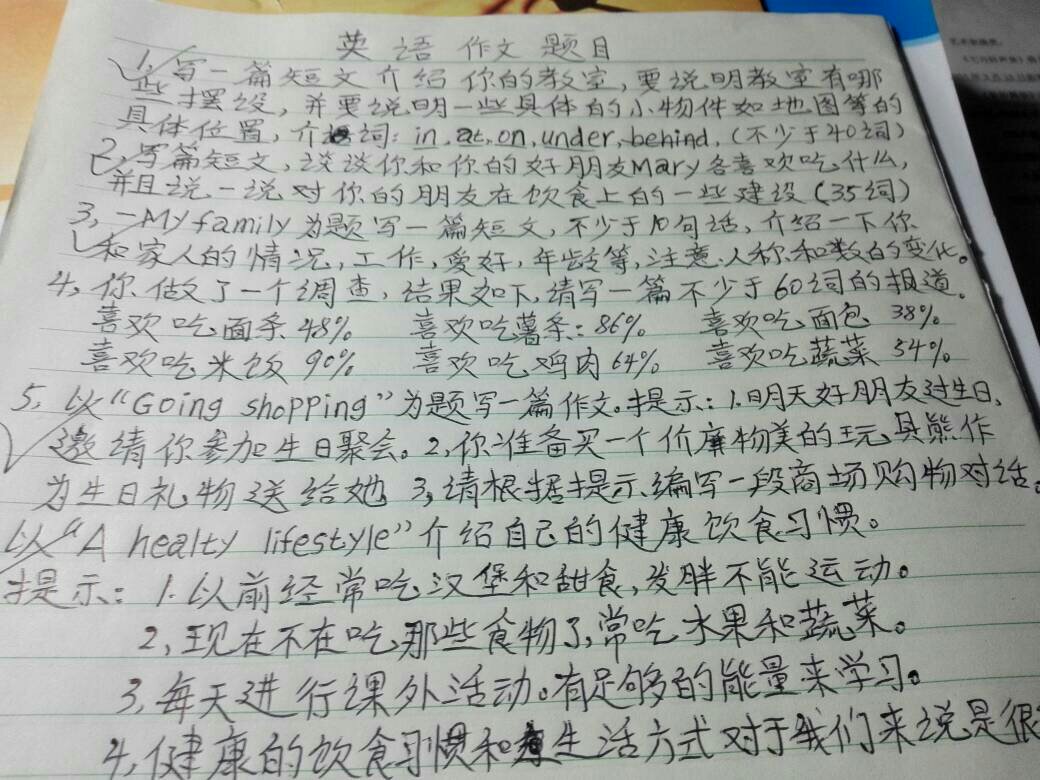 英语作文题目
1,写一篇短文介绍你的教室,要说明教室有哪
些摆设,并要说明一些具体的小物件如地图等的
具体位置,介词: in, at, on, under, behind, (不少于40词)
2,写篇短文,谈谈你和你的好朋友Mary各喜欢吃什么,
并且说一说对你的朋友在饮食上的一些建设(35词)
3,一My family为题写一篇短文,不少于10句话,介绍一下你
和家人的情况,工作,爱好,年龄等,注意人称和数的变化。
4,你做了一个调查,结果如下,请写一篇不少于60词的报道。
喜欢吃面条48% 喜欢吃薯条:86% 喜欢吃面包 38%
喜欢吃米饭 90% 喜欢吃鸡肉64% 喜欢吃蔬菜 54%
5,以“Going shopping”为题写一篇作文。提示:1.明天好朋友过生日,
邀请你参加生日聚会。2,你准备买一个价廉物美的玩具熊作
为生日礼物送给她 3,请根据提示编写一段商场购物对话。
以“A healty lifestyle”介绍自己的健康饮食习惯。
提示:1.以前经常吃汉堡和甜食,发胖不能运动。
2,现在不在吃那些食物了,常吃水果和蔬菜。
3,每天进行课外活动。有足够的能量来学习。
4,健康的饮食习惯和生活方式对于我们来说是很